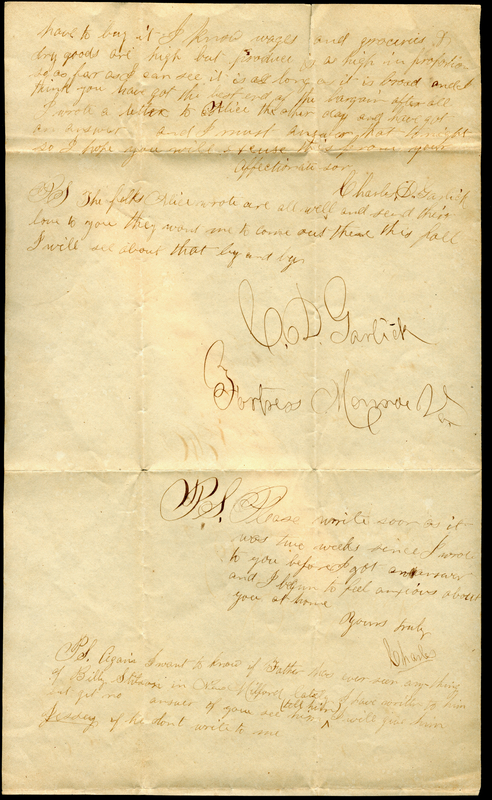 have to buy it I know wages and groceries &
dry goods are high but produce is as high in proportion
so as far as I can see it is as long as it is broad and I
think you have got the best end of the bargain after all
I wrote a letter to Alice the other day and have got
an answer and I must answer that tonight
so I hope you will excuse this from your
affectionate son
Charles D. Garlick
PS The folks Alice wrote are all well and send their
love to you they want me to come out there this fall
I will see about that by and by
C. D. Garlick
Fortress Monroe Va
PS. Please write soon as it
was two weeks since I wrote
to you before I got an answer
and I begin to feel anxious about
you at home
Yours truly
Charles
PS. Again I want to know if Father has ever seen anything
of Billy in New Milford lately I have written to him
but get no answer if you see him (tell him) I will give him
Jessey if he dont write to me